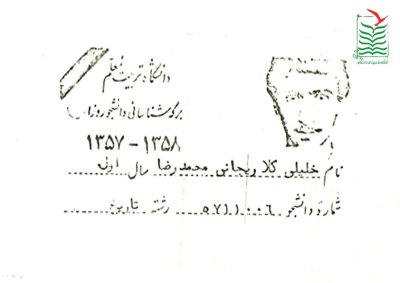 دانشگاه تربیت معلم
برگ شناسائی دانشجو روزانه
۱۳۵۷ - ۱۳۵۸
نام خلیلی کلاریجانی محمدرضا سال اول
شماره دانشجو ۵۷۱۱۰۰۶ رشته تاریخ